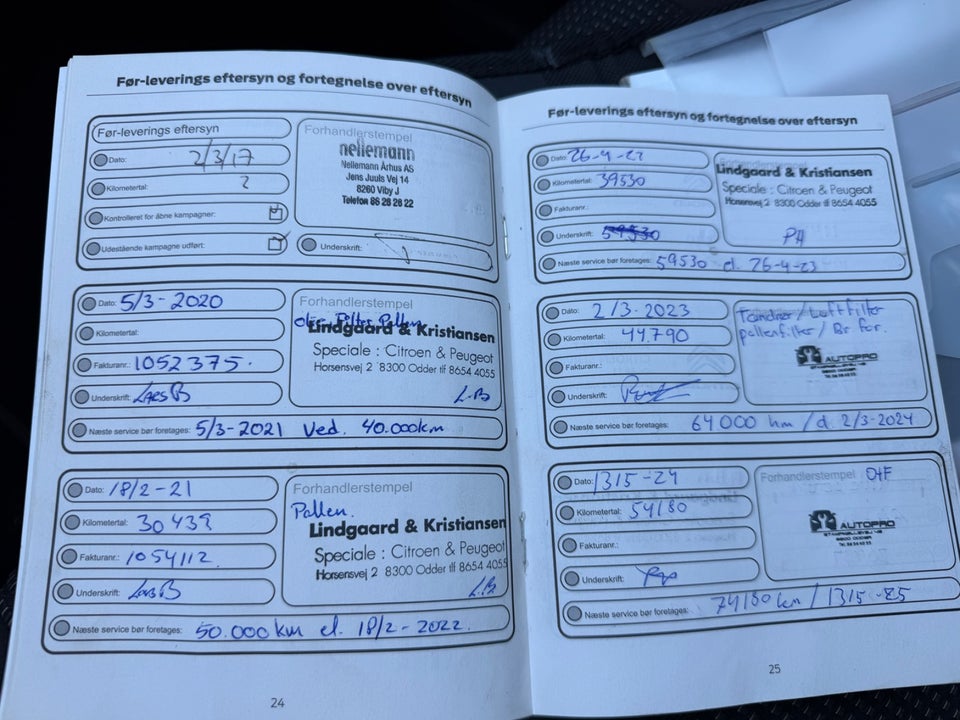 Før-leverings eftersyn og fortegnelse over eftersyn
Før-leverings eftersyn
Dato: 2/3/17
Kilometertal: 2
Kontrolleret for åbne kampagner:
Udestående kampagne udført:
Forhandlerstempel
nellemann
Nellemann Århus AS
Jens Juuls Vej 14
8260 Viby J
Telefon 86 28 26 22
Underskrift:
Dato: 5/3-2020
Kilometertal:
Fakturanr.: 1052375.
Underskrift: Lars B
Forhandlerstempel
Lindgaard & Kristiansen
Speciale : Citroen & Peugeot
Horsensvej 2 8300 Odder tlf 8654 4055
L.B
Næste service bør foretages: 5/3-2021 Ved. 40.000km
Dato: 18/2-21
Kilometertal: 30439
Fakturanr.: 1054112.
Underskrift: Lars B
Forhandlerstempel
Pollen.
Lindgaard & Kristiansen
Speciale : Citroen & Peugeot
Horsensvej 2 8300 Odder tlf 8654 4055
L.B
Næste service bør foretages: 50.000km el. 18/2-2022.
24
Før-leverings eftersyn og fortegnelse over eftersyn
Dato: 26-4-22
Kilometertal: 39530
Fakturanr.:
Underskrift: 59530
Lindgaard & Kristiansen
Speciale : Citroen & Peugeot
Horsensvej 2 8300 Odder tlf 8654 4055
PH
Næste service bør foretages: 59530 el. 26-4-23
Dato: 2/3-2023
Kilometertal: 44.790
Fakturanr.:
Underskrift:
Tændrør/Luftfilter
pollenfilter/Br for.
AUTOPRO
Næste service bør foretages: 64000 km /d. 2/3-2024
Dato: 13/5-24
Kilometertal: 54180
Fakturanr.:
Underskrift:
Forhandlerstempel O+F
AUTOPRO
Næste service bør foretages: 74180 km / 13/5-25
25